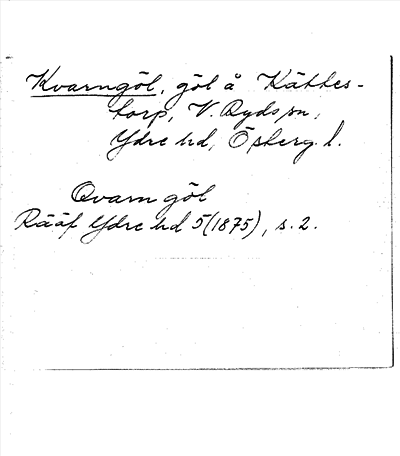 Kvarngöl, göl å Kättes-
torp, V. Ryds sn,
Ydre hd, Österg. l.
Qvarn göl
Rääf Ydre hd 5 (1875), s. 2.